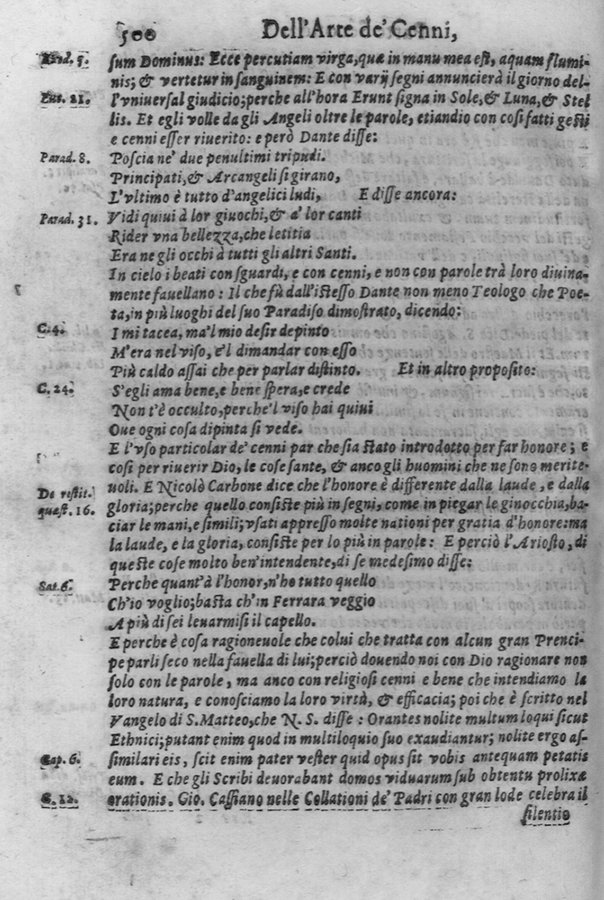 500 Dell'Arte de' Cenni,
Exod. 5. sum Dominus: Ecce percutiam virga, quæ in manu mea est, aquam flumi-
nis; & vertetur in sanguinem: E con varij segni annuncierà il giorno del-
Luc. 21. l'vniuersal giudicio; perche all'hora Erunt signa in Sole, & Luna, & Stel
lis. Et egli volle da gli Angeli oltre le parole, etiandio con cosi fatti gesti
e cenni esser riuerito: e però Dante disse:
Parad. 8. Poscia ne' due penultimi tripudi.
Principati, & Arcangeli si girano,
L'vltimo è tutto d'angelici ludi, E disse ancora:
Parad. 31. Vidi quiui à lor giuochi, & a' lor canti
Rider vna bellezza, che letitia
Era ne gli occhi à tutti gli altri Santi.
In cielo i beati con sguardi, e con cenni, e non con parole trà loro diuina-
mente fauellano: Il che fù dall'istesso Dante non meno Teologo che Poe-
ta, in più luoghi del suo Paradiso dimostrato, dicendo:
C. 4. I mi tacea, ma'l mio desir depinto
M'era nel viso, e'l dimandar con esso
Più caldo assai che per parlar distinto. Et in altro proposito:
C. 24. S'egli ama bene, e bene spera, e crede
Non t'è occulto, perche'l viso hai quiui
Oue ogni cosa dipinta si vede.
E l'vso particolar de' cenni par che sia stato introdotto per far honore; e
cosi per riuerir Dio, le cose sante, & anco gli huomini che ne sono merite-
De restit. uoli. E Nicolò Carbone dice che l'honore è differente dalla laude, e dalla
quæst. 16. gloria; perche quello consiste più in segni, come in piegar le ginocchia, ba-
ciar le mani, e simili; vsati appresso molte nationi per gratia d'honore: ma
la laude, e la gloria, consiste per lo più in parole: E perciò l'Ariosto, di
queste cose molto ben'intendente, di se medesimo disse:
Sat. 6. Perche quant'à l'honor, n'ho tutto quello
Ch'io voglio; basta ch'in Ferrara veggio
A più di sei leuarmisi il capello.
E perche è cosa ragioneuole che colui che tratta con alcun gran Prenci-
pe parli seco nella fauella di lui; perciò douendo noi con Dio ragionare non
solo con le parole, ma anco con religiosi cenni e bene che intendiamo la
loro natura, e conosciamo la loro virtù, & efficacia; poi che è scritto nel
Vangelo di S. Matteo, che N. S. disse: Orantes nolite multum loqui sicut
Ethnici; putant enim quod in multiloquio suo exaudiantur; nolite ergo as-
Cap. 6. similari eis, scit enim pater vester quid opus sit vobis antequam petatis
eum. E che gli Scribi deuorabant domos viduarum sub obtentu prolixæ
C. 12. orationis. Gio. Cassiano nelle Collationi de' Padri con gran lode celebra il
silentio